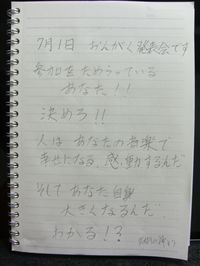 7月1日 おんがく発表会です
参加をためらっている
あなた!!
決めろ!!
人は あなたの音楽で
幸せになる、感動するんだ
そして あなた自身
大きくなるんだ.
わかる!?